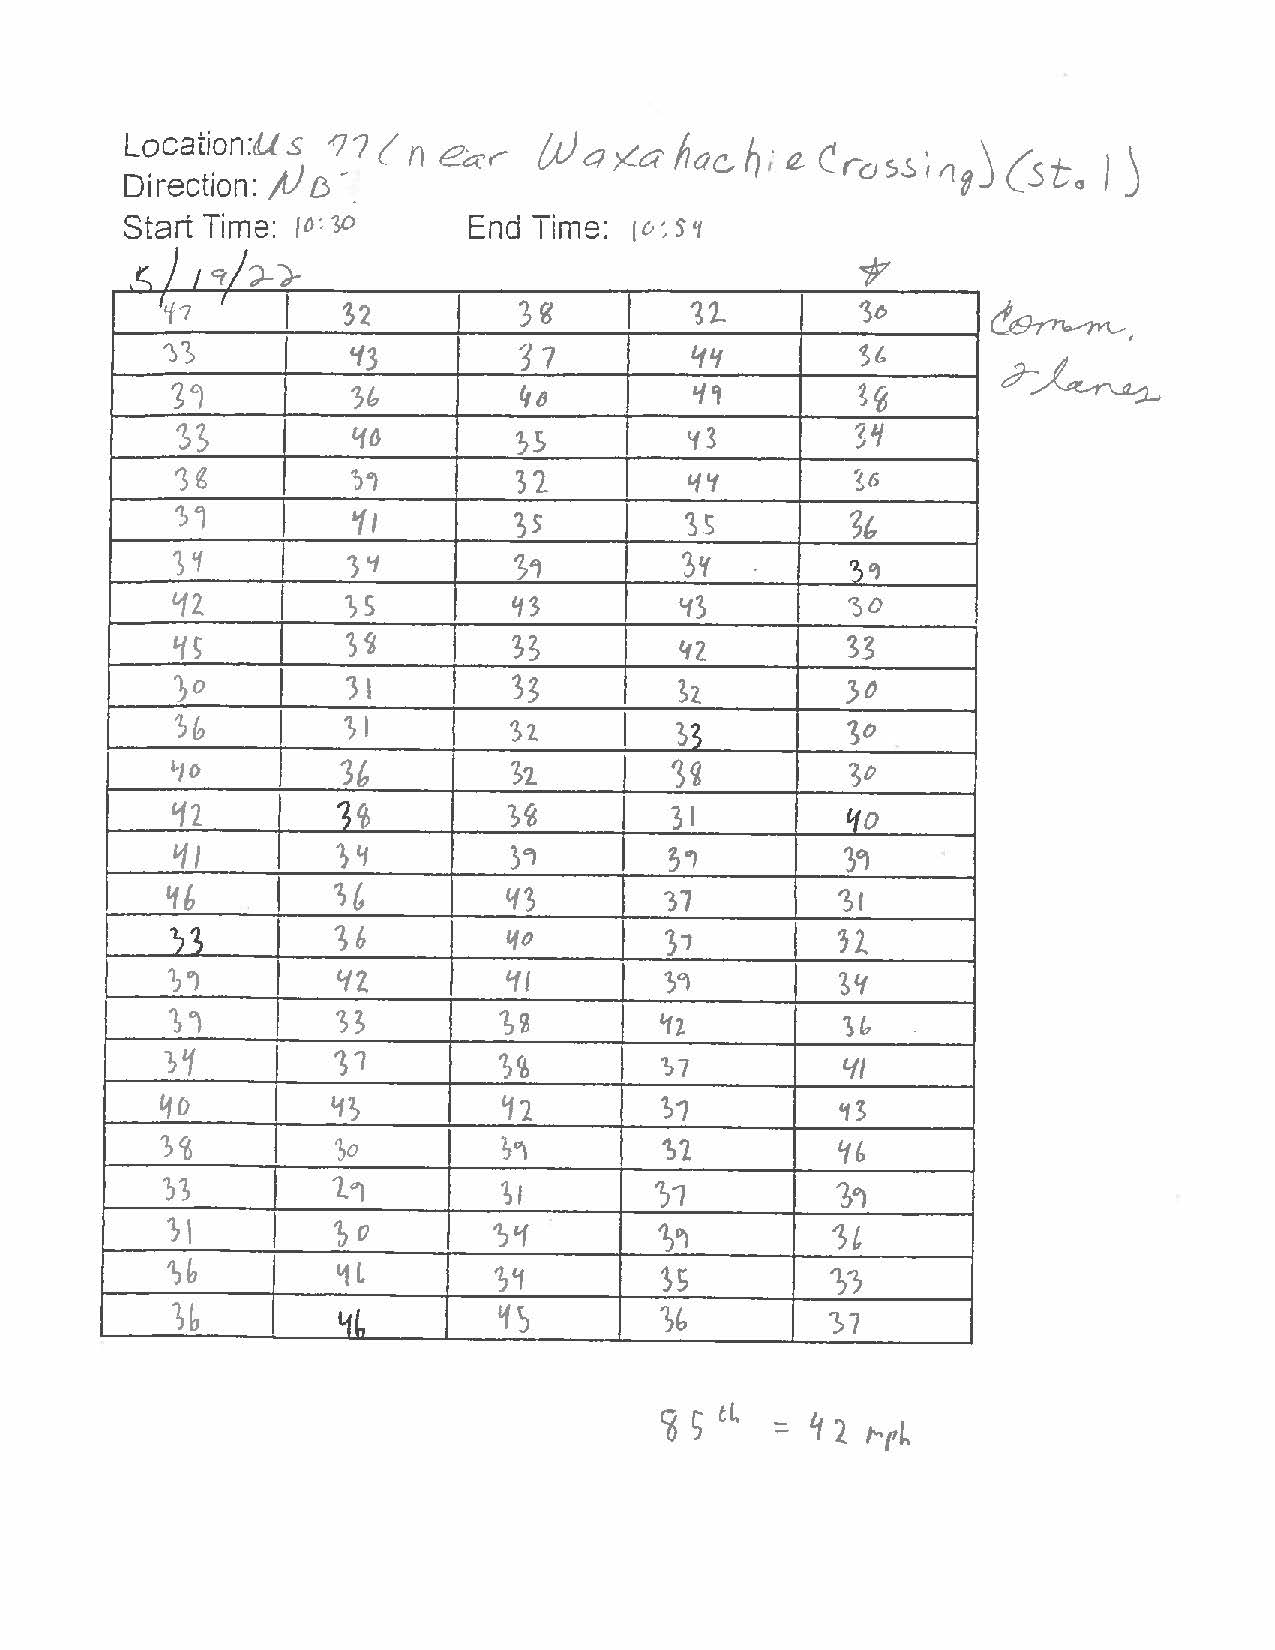 Location: US 77 (near Waxahachie Crossing) (St. 1)
Direction: NB
Start Time: 10:30 End Time: 10:54
5/19/22 *
47 32 38 32 30 Comm.
33 43 37 44 36 2 lanes
39 36 40 49 38
33 40 35 43 34
38 39 32 44 36
39 41 35 35 36
34 34 39 34 39
42 35 43 43 30
45 38 33 42 33
30 31 33 32 30
36 31 32 33 30
40 36 32 38 30
42 38 38 31 40
41 34 39 39 39
46 36 43 37 31
33 36 40 37 32
39 42 41 39 34
39 33 38 42 36
34 37 38 37 41
40 43 42 37 43
38 30 39 32 46
33 29 31 37 39
31 30 34 39 36
36 46 34 35 33
36 46 45 36 37
85th = 42 mph